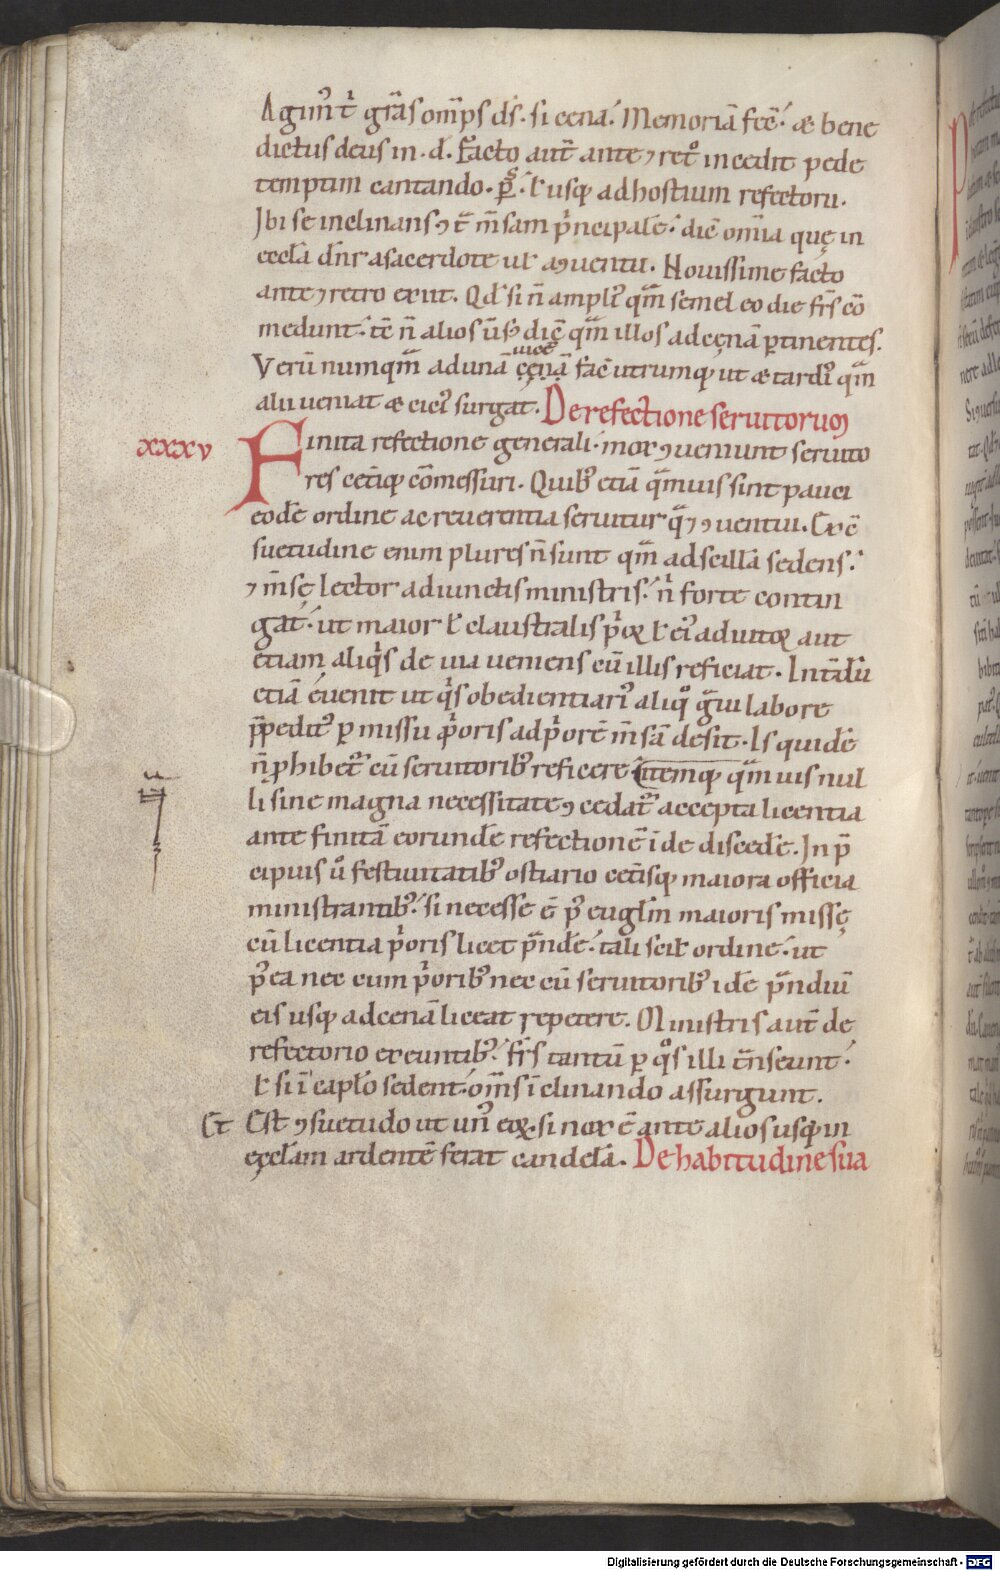 Agim᷒ t̾ gr̄as om̄ps d̄s. si cena. Memoriā fec̄. & bene
dictus deus in. d. Facto aut̄ ante ⁊ ret͛o incedit pede
temptim cantando. p̄s. ł usq; ad hostium refectorii.
Ibi se inclinans ꝯt̄ m̄sam p̾ncipalē. die om̄ia quę in
eccła dn̄r a sacerdote uł a ꝯuentu. Nouissime facto
ante ⁊ retro exiit. Qd̄ si n̄ ampli᷒ qm̄ semel eo die fr̄s cō
medunt. tc̄ n̄ alios ūs᷒ dic̄ qm̄ illos ad cęnā ꝑtinentes.
Verū numqm̄ ad unā uicē cęnā fac̄ utrumq; ut & tardi᷒ qm̄
alii ueniat & cici᷒ surgat. De refectione seruitorum
xxxv Finita refectione generali. mox ꝯueniunt seruito
res cetiq; cōmessuri. Quib᷒ etiā qm̄uis sint pauci
eodē ordine ac reuerentia seruitur q̄ ⁊ ꝯuentui. Ex cō
suetudine enim plures n̄ sunt qm̄ ad scillā sedens.
⁊ m̄sę lector adiunctis ministris. n̄ forte contin
gat. ut maior ł claustralis p̾oꝝ ł ei᷒ adiutoꝝ aut
etiam aliq̾s de uia ueniens cū illis reficiat. Int̄dū
etiā euenit ut q̾s obedientiari᷒ aliq͛o g̃ui labore
p̄pedit᷒ ꝑmissu p̾oris ad p̾orē m̄sā desit. Is quidē
n̄ ꝓhibet᷒ cū seruitorib᷒ reficere. itemq; qm̄uis nul
li sine magna necessitate ꝯcedat᷒ accepta licentia
ante finitā eorundē refectionē īde discedē. In p̄
cipuis ū festiuitatib᷒ ostiario cetisq; maiora officia
ministrantib᷒. si necesse ē p᷒ euglm̄ maioris missę
cū licentia p̾oris licet p̄ndē. tali scił ordine. ut
p᷒ea nec cum p̾orib᷒ nec cū seruitorib᷒ idē p̄ndiū
eis usq; ad cenā liceat repetere. Ministris aut̄ de
refectorio exeuntib᷒. fr̄s tantū ꝑ q͛s illi t̄nseunt.
ł si ī capłо sedent. om̄s īclinando assurgunt.
Ct̄ Est ꝯsuetudo ut un᷒ eoꝝ. si nox ē ante alios usq; in
ęcclam ardentē ferat candelā. De habitudine sua
Digitalisierung gefördert durch die Deutsche Forschungsgemeinschaft - DFG